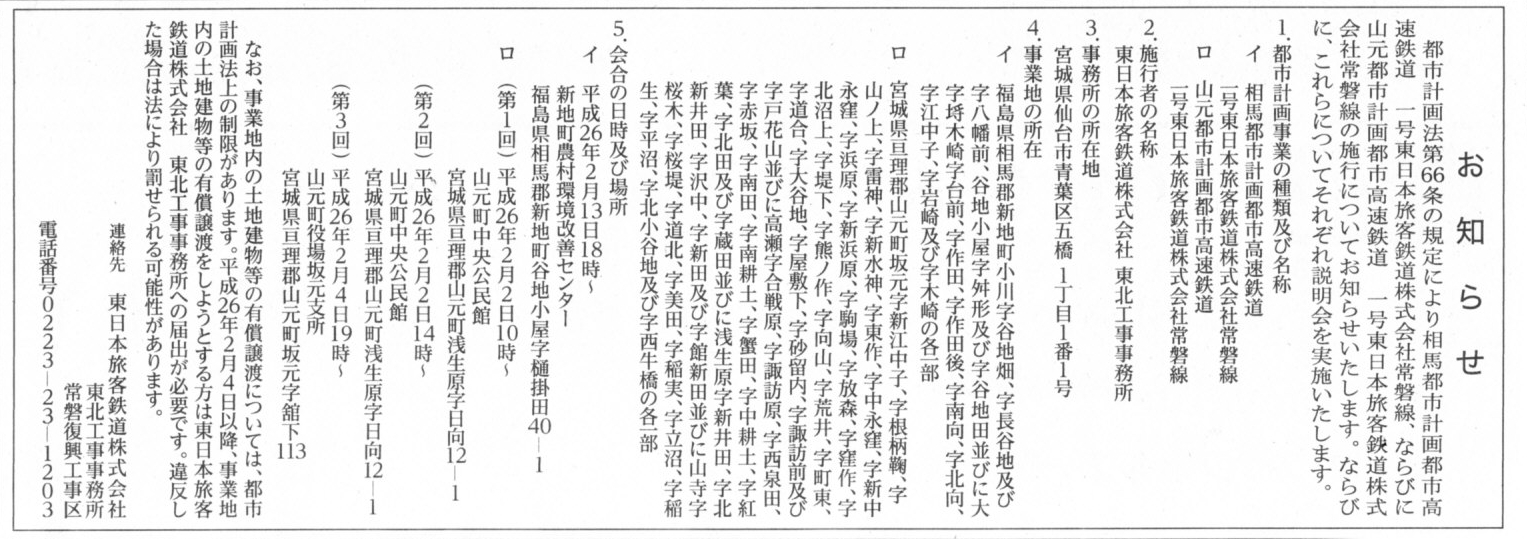 お知らせ
都市計画法第66条の規定により相馬都市計画都市高
速鉄道　一号東日本旅客鉄道株式会社常磐線、ならびに
山元都市計画都市高速鉄道　一号東日本旅客鉄道株式
会社常磐線の施行についてお知らせいたします。ならび
に、これらについてそれぞれ説明会を実施いたします。
1.都市計画事業の種類及び名称
イ　相馬都市計画都市高速鉄道
一号東日本旅客鉄道株式会社常磐線
ロ　山元都市計画都市高速鉄道
一号東日本旅客鉄道株式会社常磐線
2.施行者の名称
東日本旅客鉄道株式会社　東北工事事務所
3.事務所の所在地
宮城県仙台市青葉区五橋　1丁目1番1号
4.事業地の所在
イ　福島県相馬郡新地町小川字谷地畑、字長谷地及び
字八幡前、谷地小屋字舛形及び字谷地田並びに大
字埓木崎字台前、字作田、字作田後、字南向、字北向、
字江中子、字岩崎及び字木崎の各一部
ロ　宮城県亘理郡山元町坂元字新江中子、字根柄鞠、字
山ノ上、字雷神、字新水神、字東作、字中永窪、字新中
永窪、字浜原、字新浜原、字駒場、字放森、字窪作、字
北沼上、字堤下、字熊ノ作、字向山、字荒井、字町東、
字道合、字大谷地、字屋敷下、字砂留内、字諏訪前及び
字戸花山並びに高瀬字合戦原、字諏訪原、字西泉田、
字赤坂、字南田、字南耕土、字蟹田、字中耕土、字紅
葉、字北田及び字蔵田並びに浅生原字新井田、字北
新井田、字沢中、字新田及び字館新田並びに山寺字
桜木、字桜堤、字道北、字美田、字稲実、字立沼、字稲
生、字平沼、字北小谷地及び字西牛橋の各一部
5.会合の日時及び場所
イ　平成26年2月13日18時～
新地町農村環境改善センター
福島県相馬郡新地町谷地小屋字樋掛田40―1
ロ　（第1回）平成26年2月2日10時～
山元町中央公民館
宮城県亘理郡山元町浅生原字日向12―1
（第2回）平成26年2月2日14時～
山元町中央公民館
宮城県亘理郡山元町浅生原字日向12―1
（第3回）平成26年2月4日19時～
山元町役場坂元支所
宮城県亘理郡山元町坂元字舘下113
なお、事業地内の土地建物等の有償譲渡については、都市
計画法上の制限があります。平成26年2月4日以降、事業地
内の土地建物等の有償譲渡をしようとする方は東日本旅客
鉄道株式会社　東北工事事務所への届出が必要です。違反し
た場合は法により罰せられる可能性があります。
連絡先　東日本旅客鉄道株式会社
東北工事事務所
常磐復興工事区
電話番号0223―23―1203